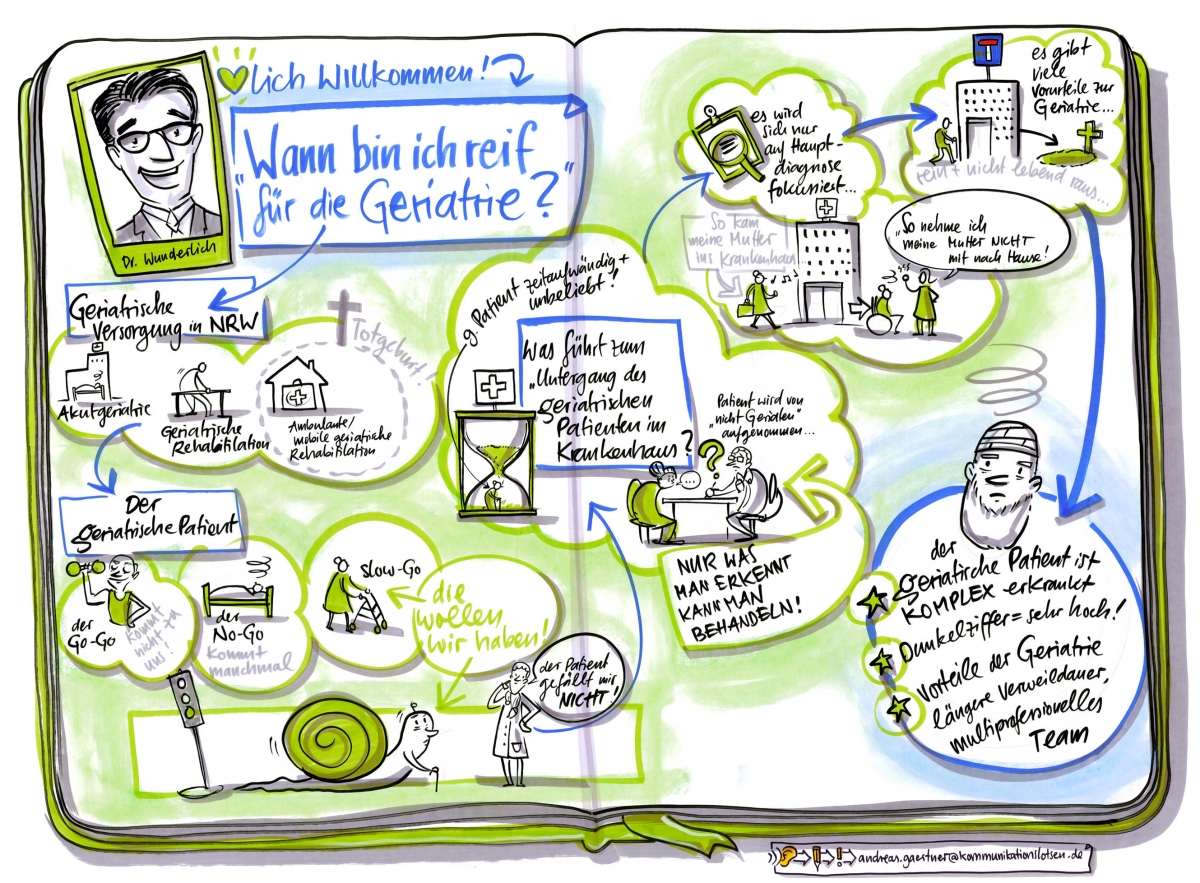 lich Willkommen!
"Wann bin ich reif
für die Geriatrie?"
Dr. Wunderlich
Geriatrische
Versorgung in NRW
Totgeburt!
Akutgeriatrie
Geriatrische
Rehabilitation
Ambulante/
mobile geriatrische
Rehabilitation
Der
geriatrische Patient
der
Go-Go
kommt
nicht zu
uns!
der
No-Go
kommt
manchmal
Slow-Go
die
wollen
wir haben!
der Patient
gefällt mir
NICHT!
g. Patient zeitaufwändig +
unbeliebt?
Was führt zum
"Untergang des
geriatrischen
Patienten im
Krankenhaus"?
Patient wird von
"nicht Gerialen"
aufgenommen...
?
...
NUR WAS
MAN ERKENNT
KANN MAN
BEHANDELN!
es wird
sich nur
auf Haupt-
diagnose
fokussiert...
So kam
meine Mutter
ins Krankenhaus
"So nehme ich
meine Mutter NICHT
mit nach Hause!
es gibt
viele
Vorurteile zur
Geriatrie...
rein + nicht lebend raus...
der
geriatrische Patient ist
KOMPLEX-erkrankt
Dunkelziffer = sehr hoch!
Vorteile der Geriatrie
längere Verweildauer,
multiprofessionelles
Team
andreas.gaertner@kommunikationslotsen.de